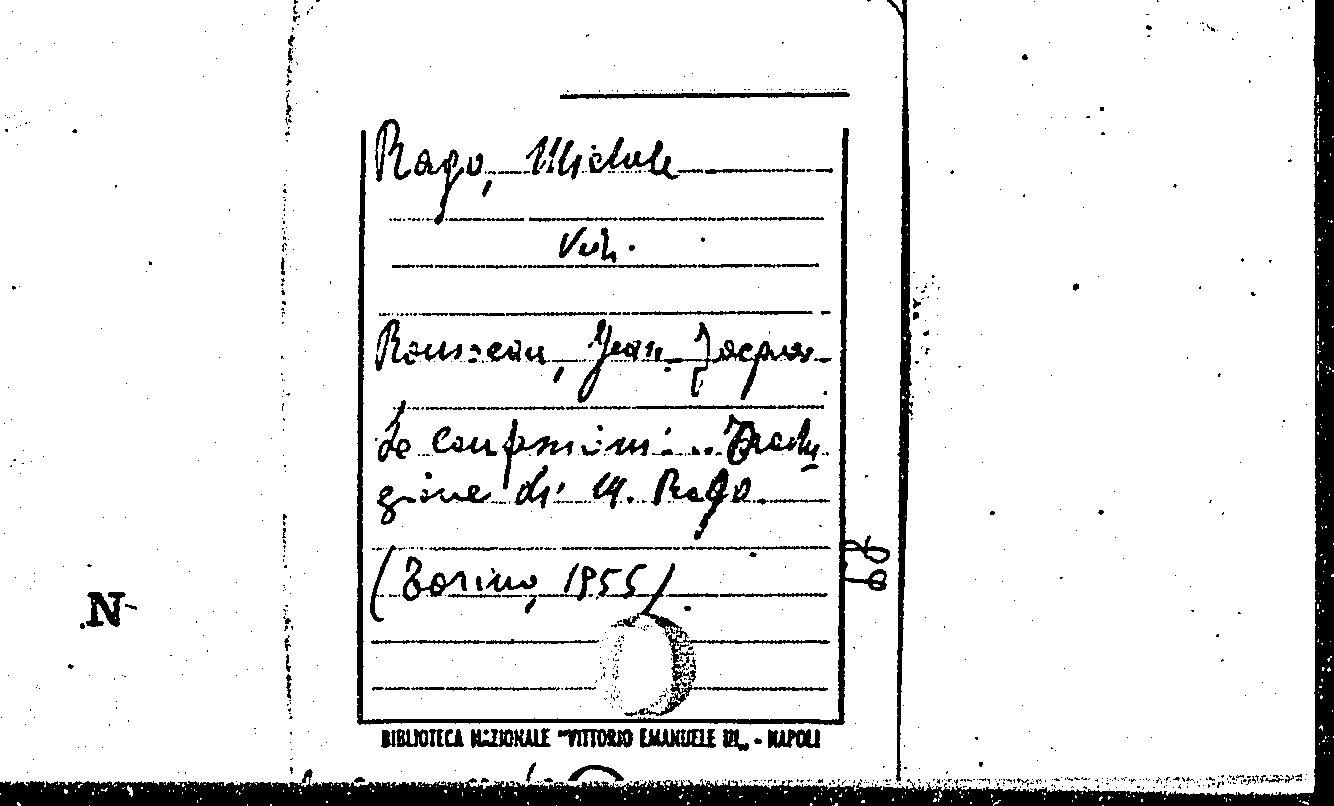 Rago, Michele
Ved.
Rousseau, Jean-Jacques
Le confessioni... Tradu
zione di M. Rago.
(Torino, 1955).
N
BIBLIOTECA NAZIONALE "VITTORIO EMANUELE III„ - NAPOLI